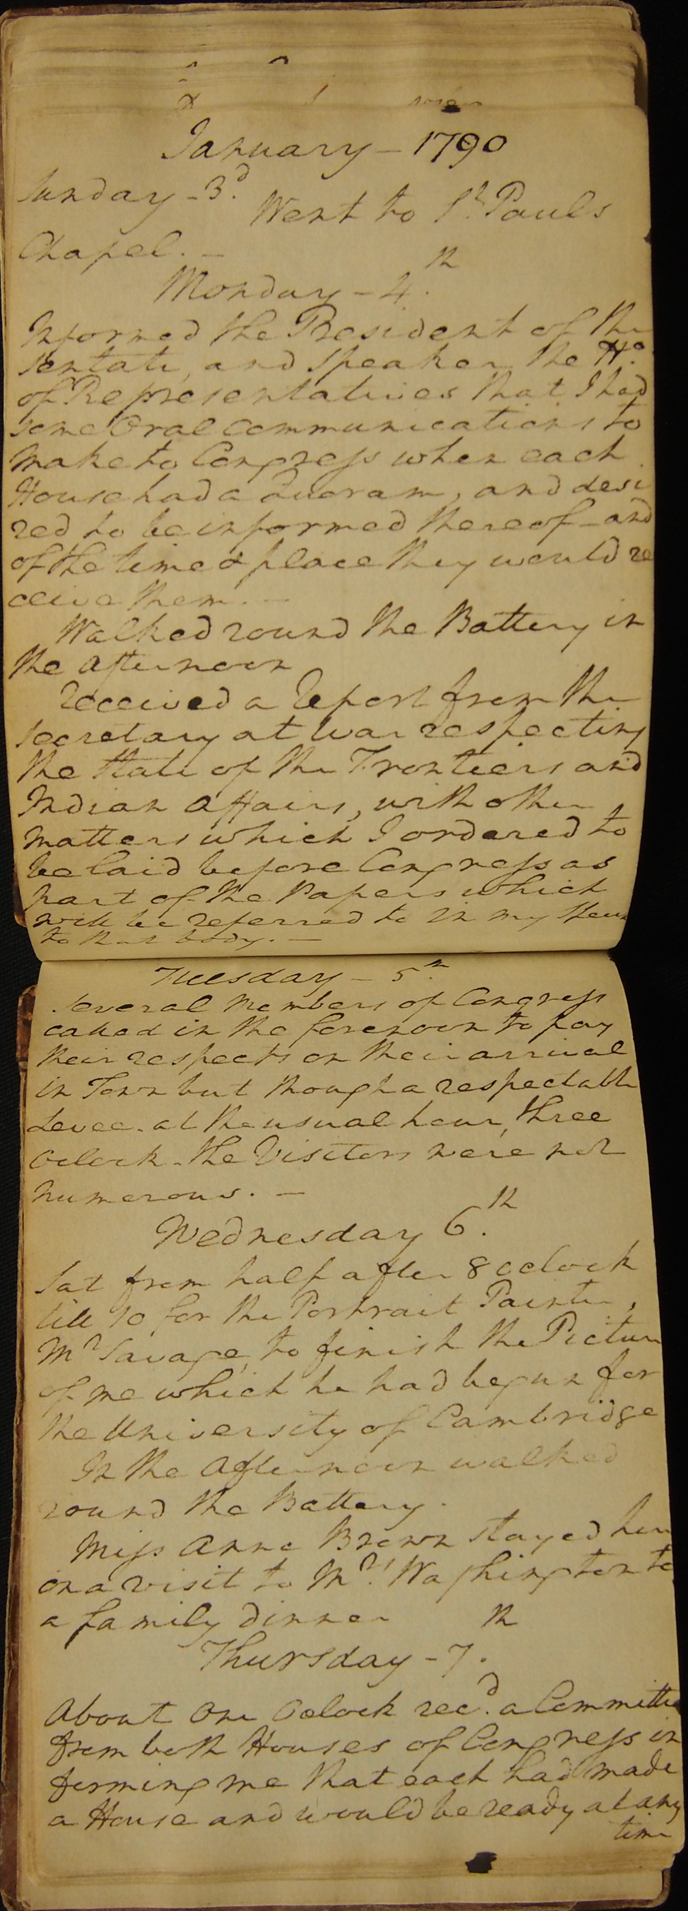 January – 1790
Sunday – 3d.
Went to St. Pauls
Chapel. –
Monday – 4th.
Informed the President of the
Sentate, and Speaker the Ho.
of Representatives that I had
some Oral communications to
make to Congress when each
House had a Quoram, and desi
red to be informed thereof – and
of the time & place they would re
ceive them. –
Walked round the Battery in
the afternoon
Received a Report from the
Secretary at War respecting
the State of the Frontiers and
Indian Affairs, with other
matters which I ordered to
be laid before Congress as
part of the Papers which
will be referred to in my
to that body. –
Tuesday – 5th.
Several Members of Congress
called in the forenoon to pay
their respects on their arrival
in Town but though a respectable
Levee at the usual hour, three
Oclock – the Visitors were not
numerous. –
Wednesday 6th.
Sat from half after 8 oclock
till 10 for the Portrait Painter,
Mr Savage, to finish the Picture
of me which he had begun for
the University of Cambridge
In the Afternoon walked
round the Battery.
Miss Anne Brown stayed here
on a visit to Mrs. Washington to
a family dinner
Thursday – 7th.
About One Oclock recd. a Committee
from both Houses of Congress in
forming me that each had made
a House and would be ready at any
time